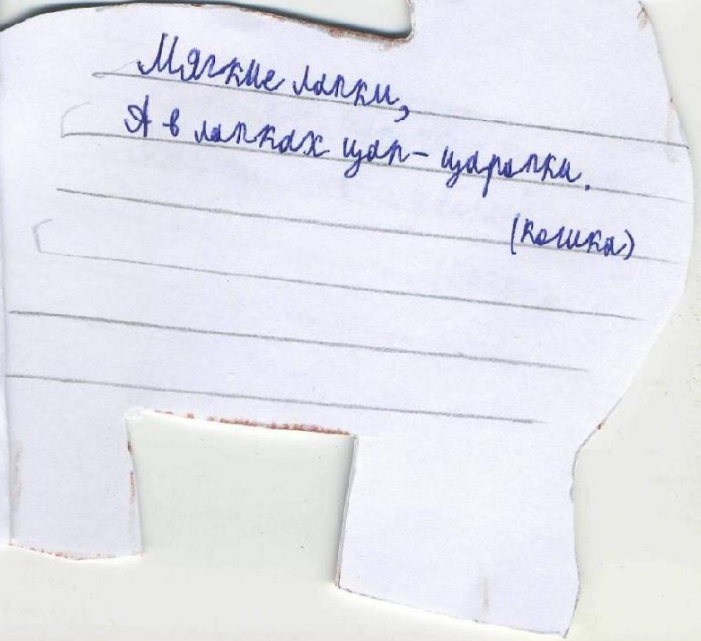 Мягкие лапки,
А в лапках цап-царапки.
(кошка)